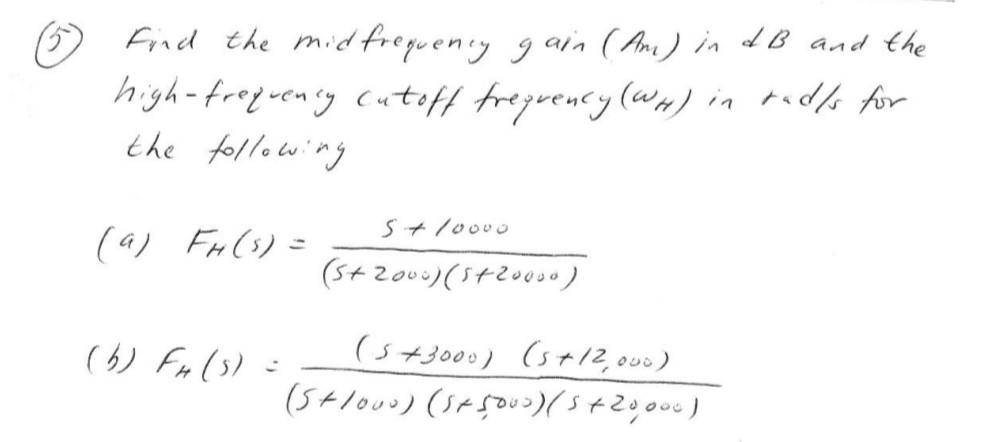 (5) Find the midfrequency gain (Am) in dB and the
high-frequency cutoff frequency (ωH) in rad/s for
the following
(a) FH(s) = s+10000
(s+2000)(s+20000)
(b) FH(s) = (s+3000) (s+12,000)
(s+1000) (s+5000)(s+20,000)